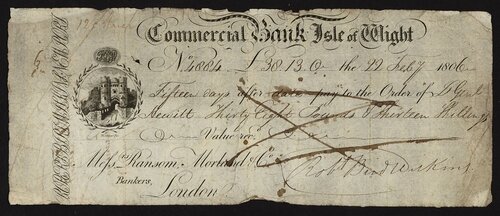 Commercial Bank Isle of Wight
No. 4884 £38.13.0 the 22 Feby 1806
Fifteen days after date pay to the Order of
Hewitt Thirty Eight Pounds & Thirteen Shillings
Value rec
Messrs Ransom, Morland & Co
Bankers,
London
Robt Bird Wilkins